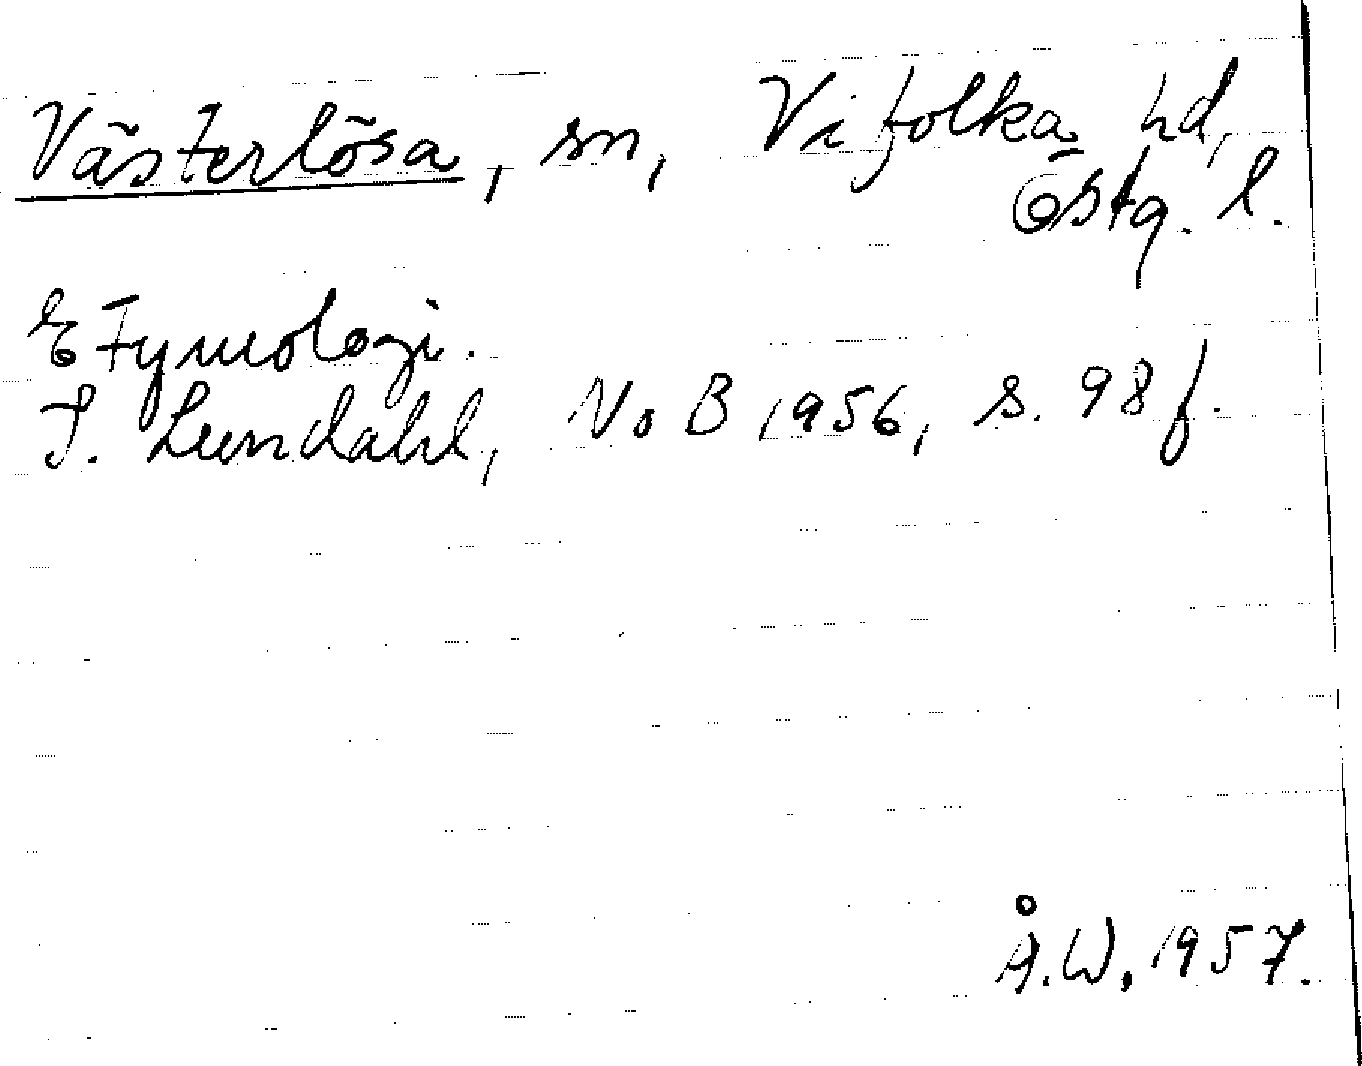 Västerlösa, sn, Vifolka hd,
Östg. l.
Etymologi.
I. Lundahl, NoB 1956, s. 98 f.
Å.W. 1957.